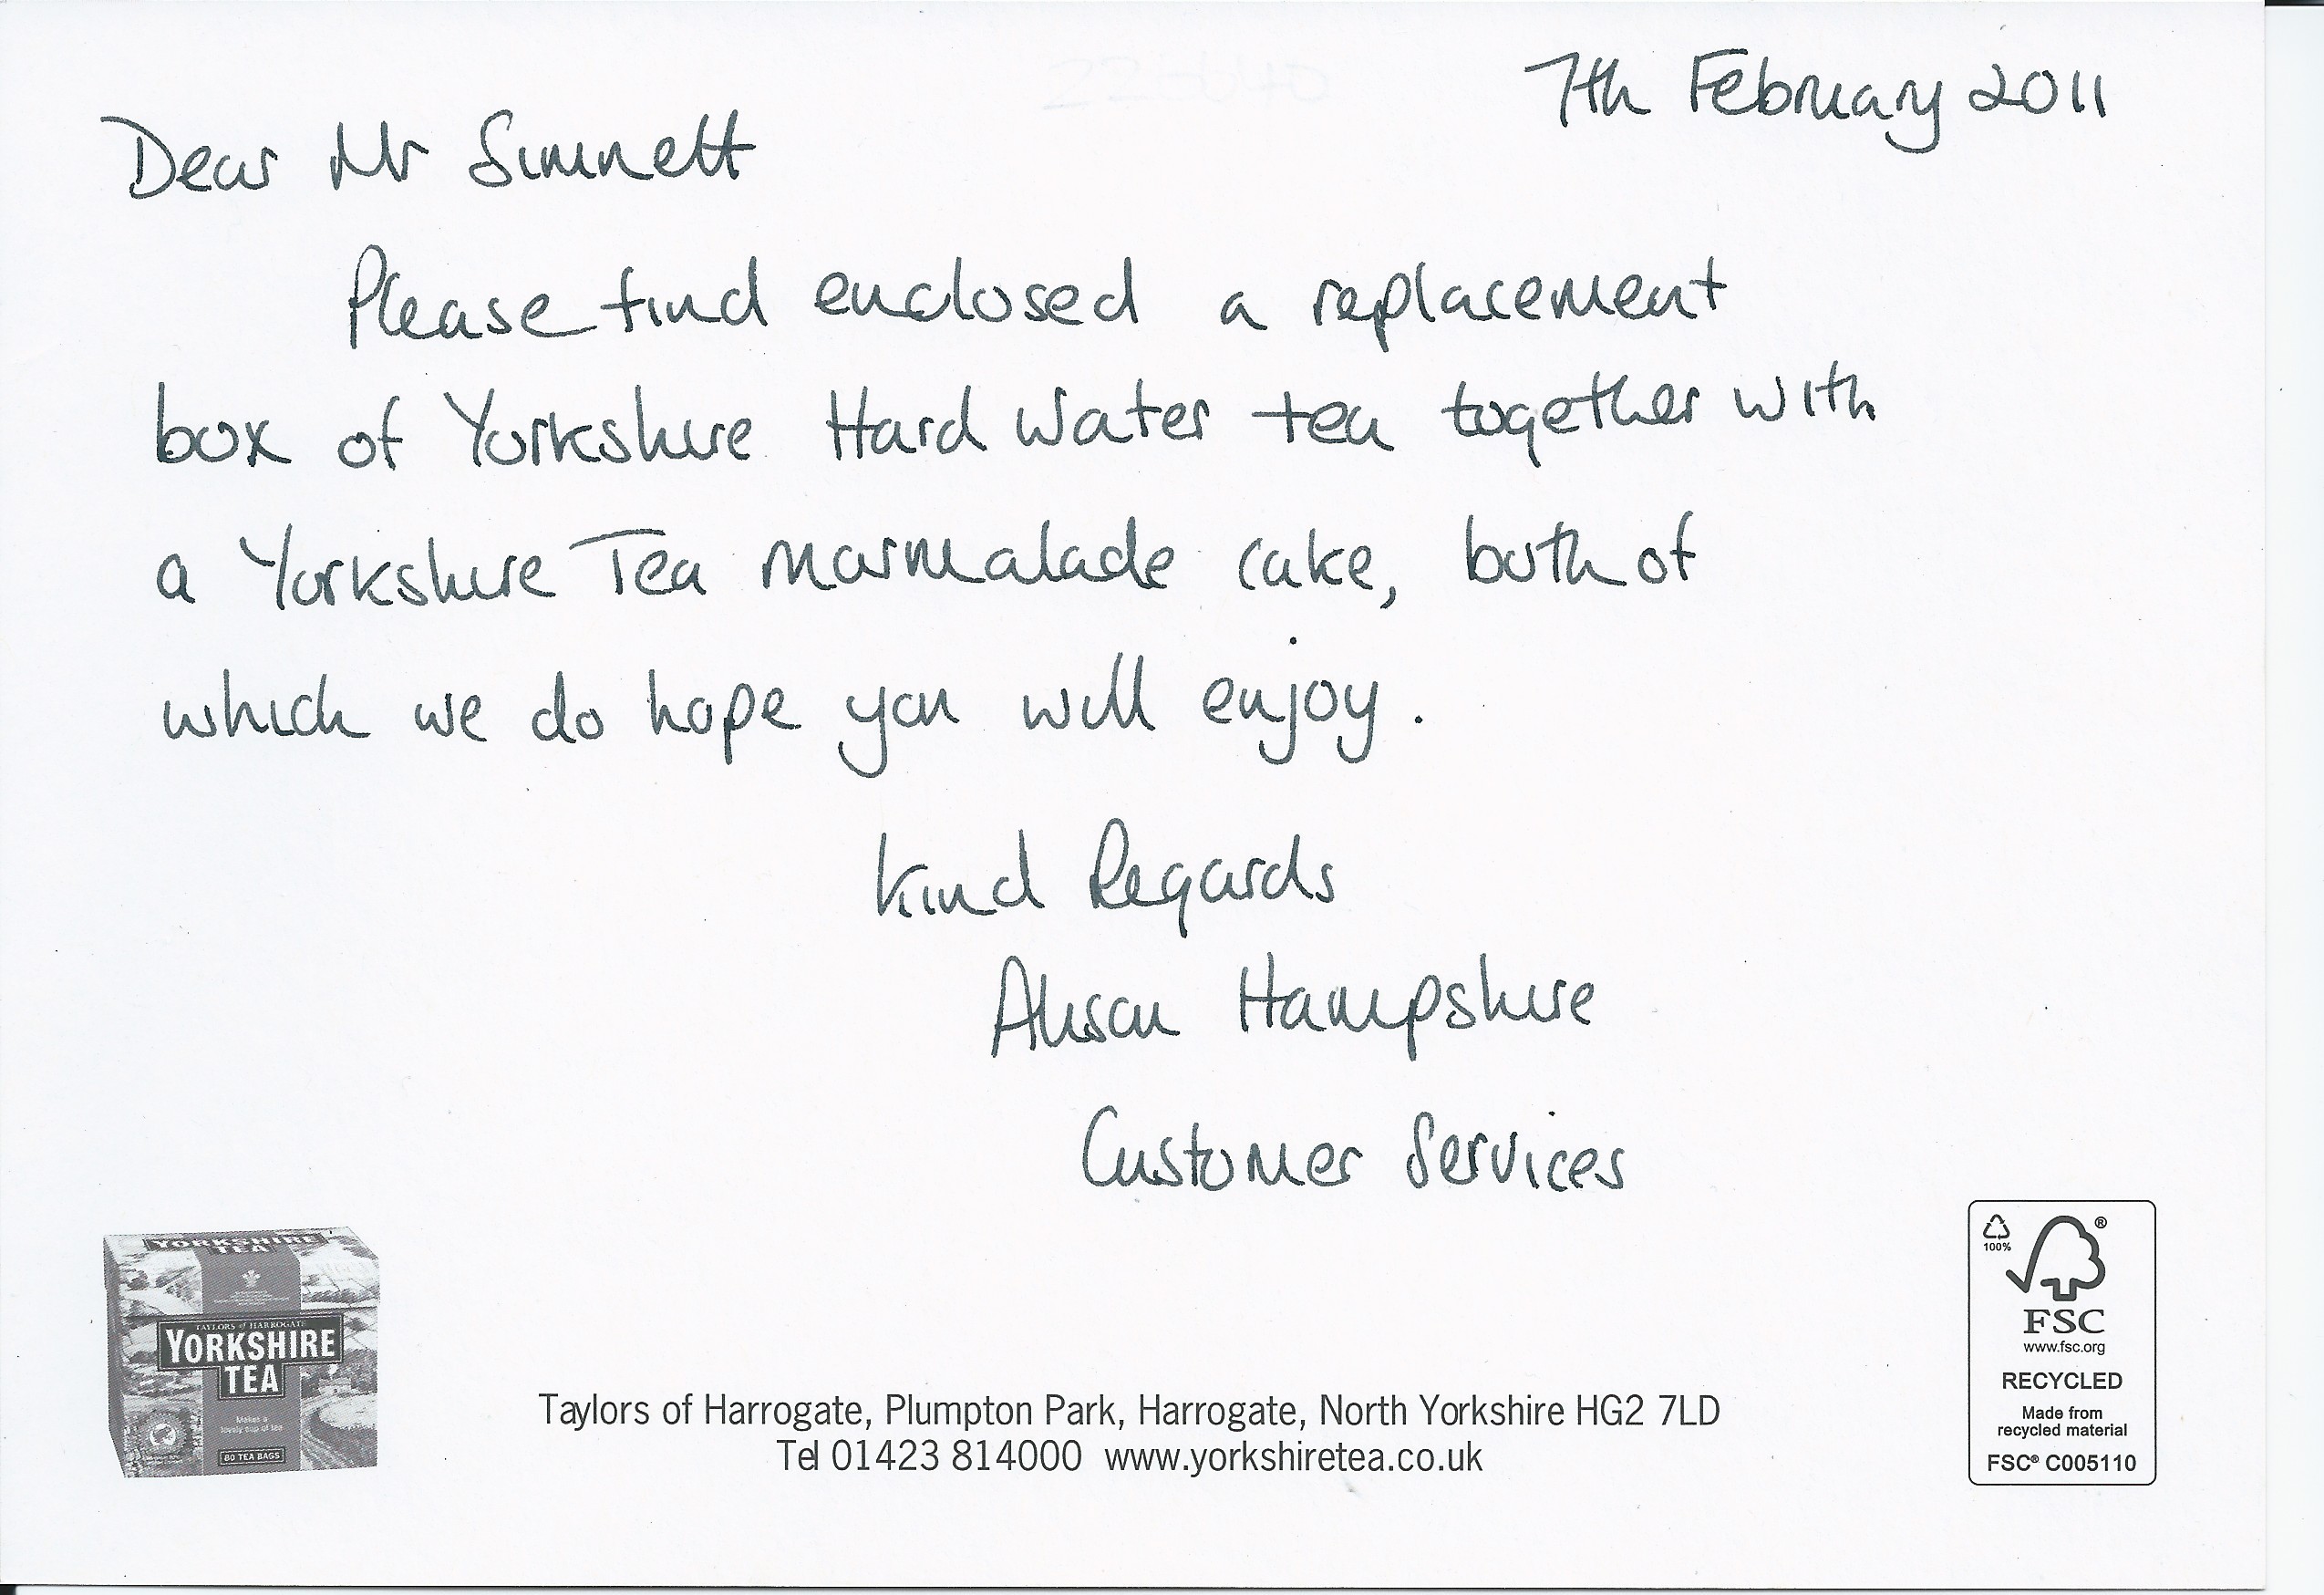 7th February 2011
Dear Mr Simnett
Please find enclosed a replacement
box of Yorkshire Hard Water tea together with
a Yorkshire Tea marmalade cake, both of
which we do hope you will enjoy.
Kind Regards
Alison Hampshire
Customer Services
YORKSHIRE
TEA
TAYLORS of HARROGATE
YORKSHIRE
TEA
Makes a
lovely cup of tea
80 TEA BAGS
Taylors of Harrogate, Plumpton Park, Harrogate, North Yorkshire HG2 7LD
Tel 01423 814000 www.yorkshiretea.co.uk
100%
®
FSC
www.fsc.org
RECYCLED
Made from
recycled material
FSC® C005110